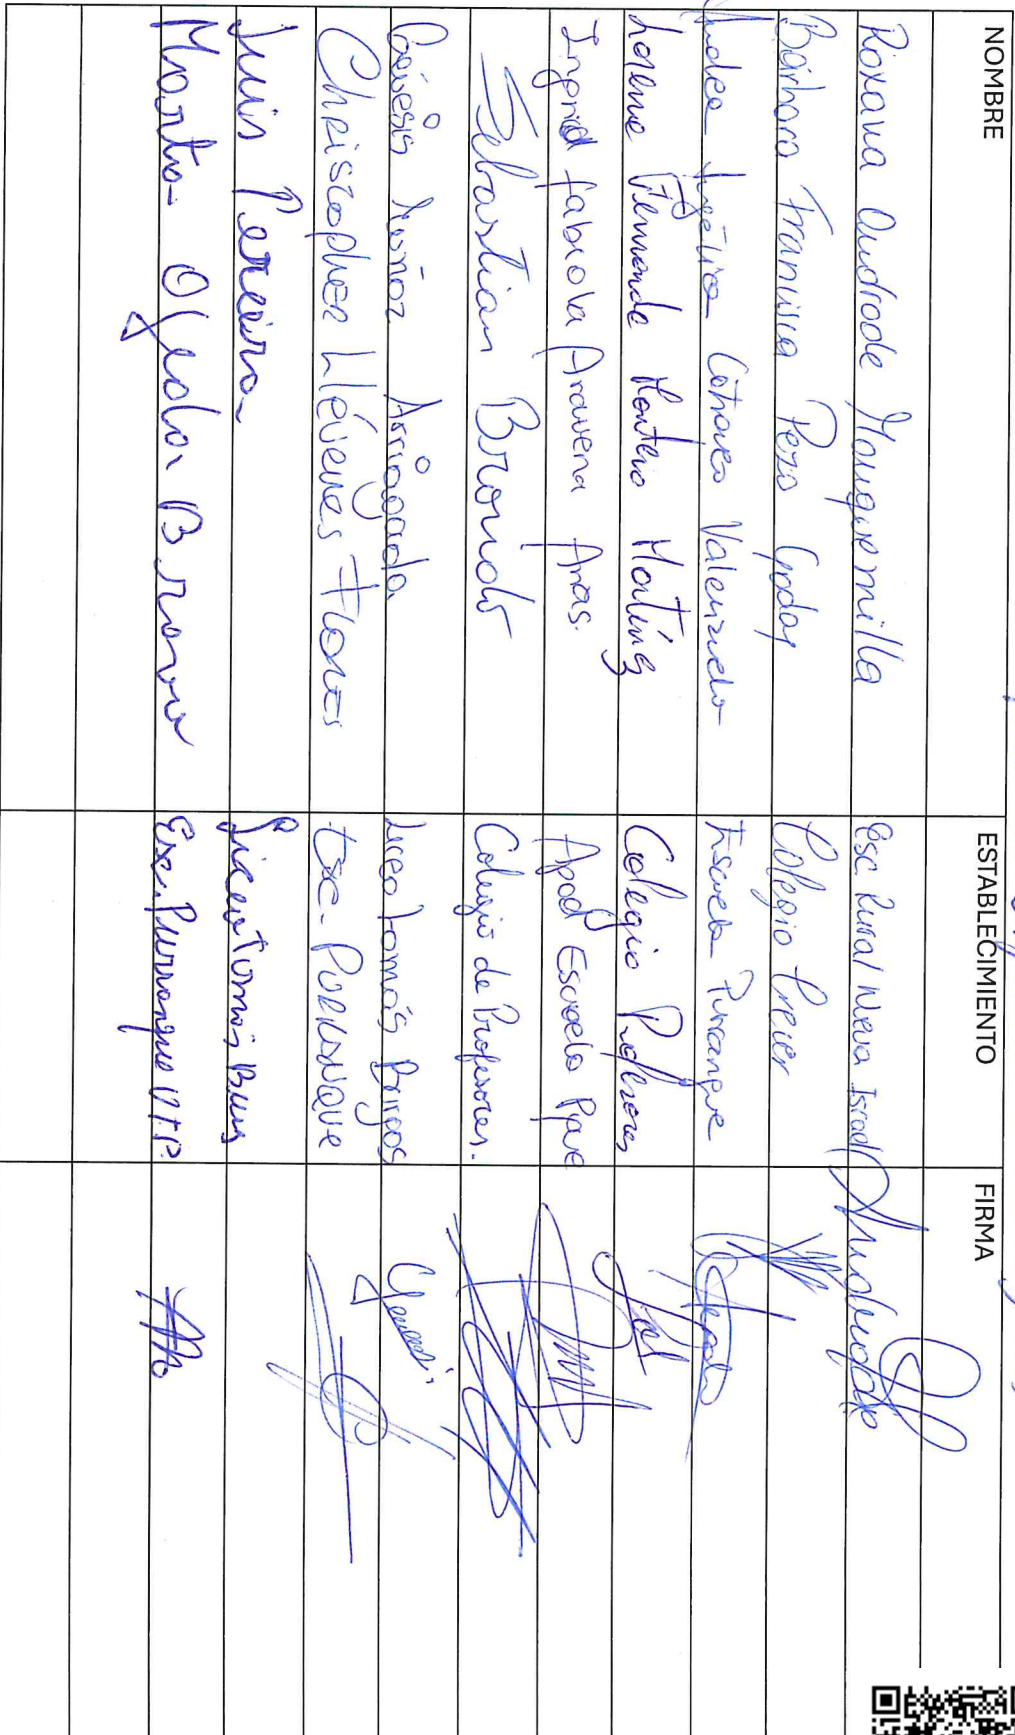 NOMBRE ESTABLECIMIENTO FIRMA
Roxana Andrade Mauquemilla Esc Rural Nueva Israel
Bárbara Francisca Pezo Godoy Colegio Crecer
Angélica Valenzuela Escuela Purranque
Lorena Fernanda Montero Colegio Profesores
Ingrid Fabiola Aravena Arias. Apod Escuela
Sebastian Colegio de Profesores.
Génesis Núñoz Arriagada Liceo Tomás Burgos
Christopher Flores Esc. PURRANQUE
Luis Pereira Liceo Tomás Burg
Marta Ojeda Bravo Esc. Purranque U.T.P.